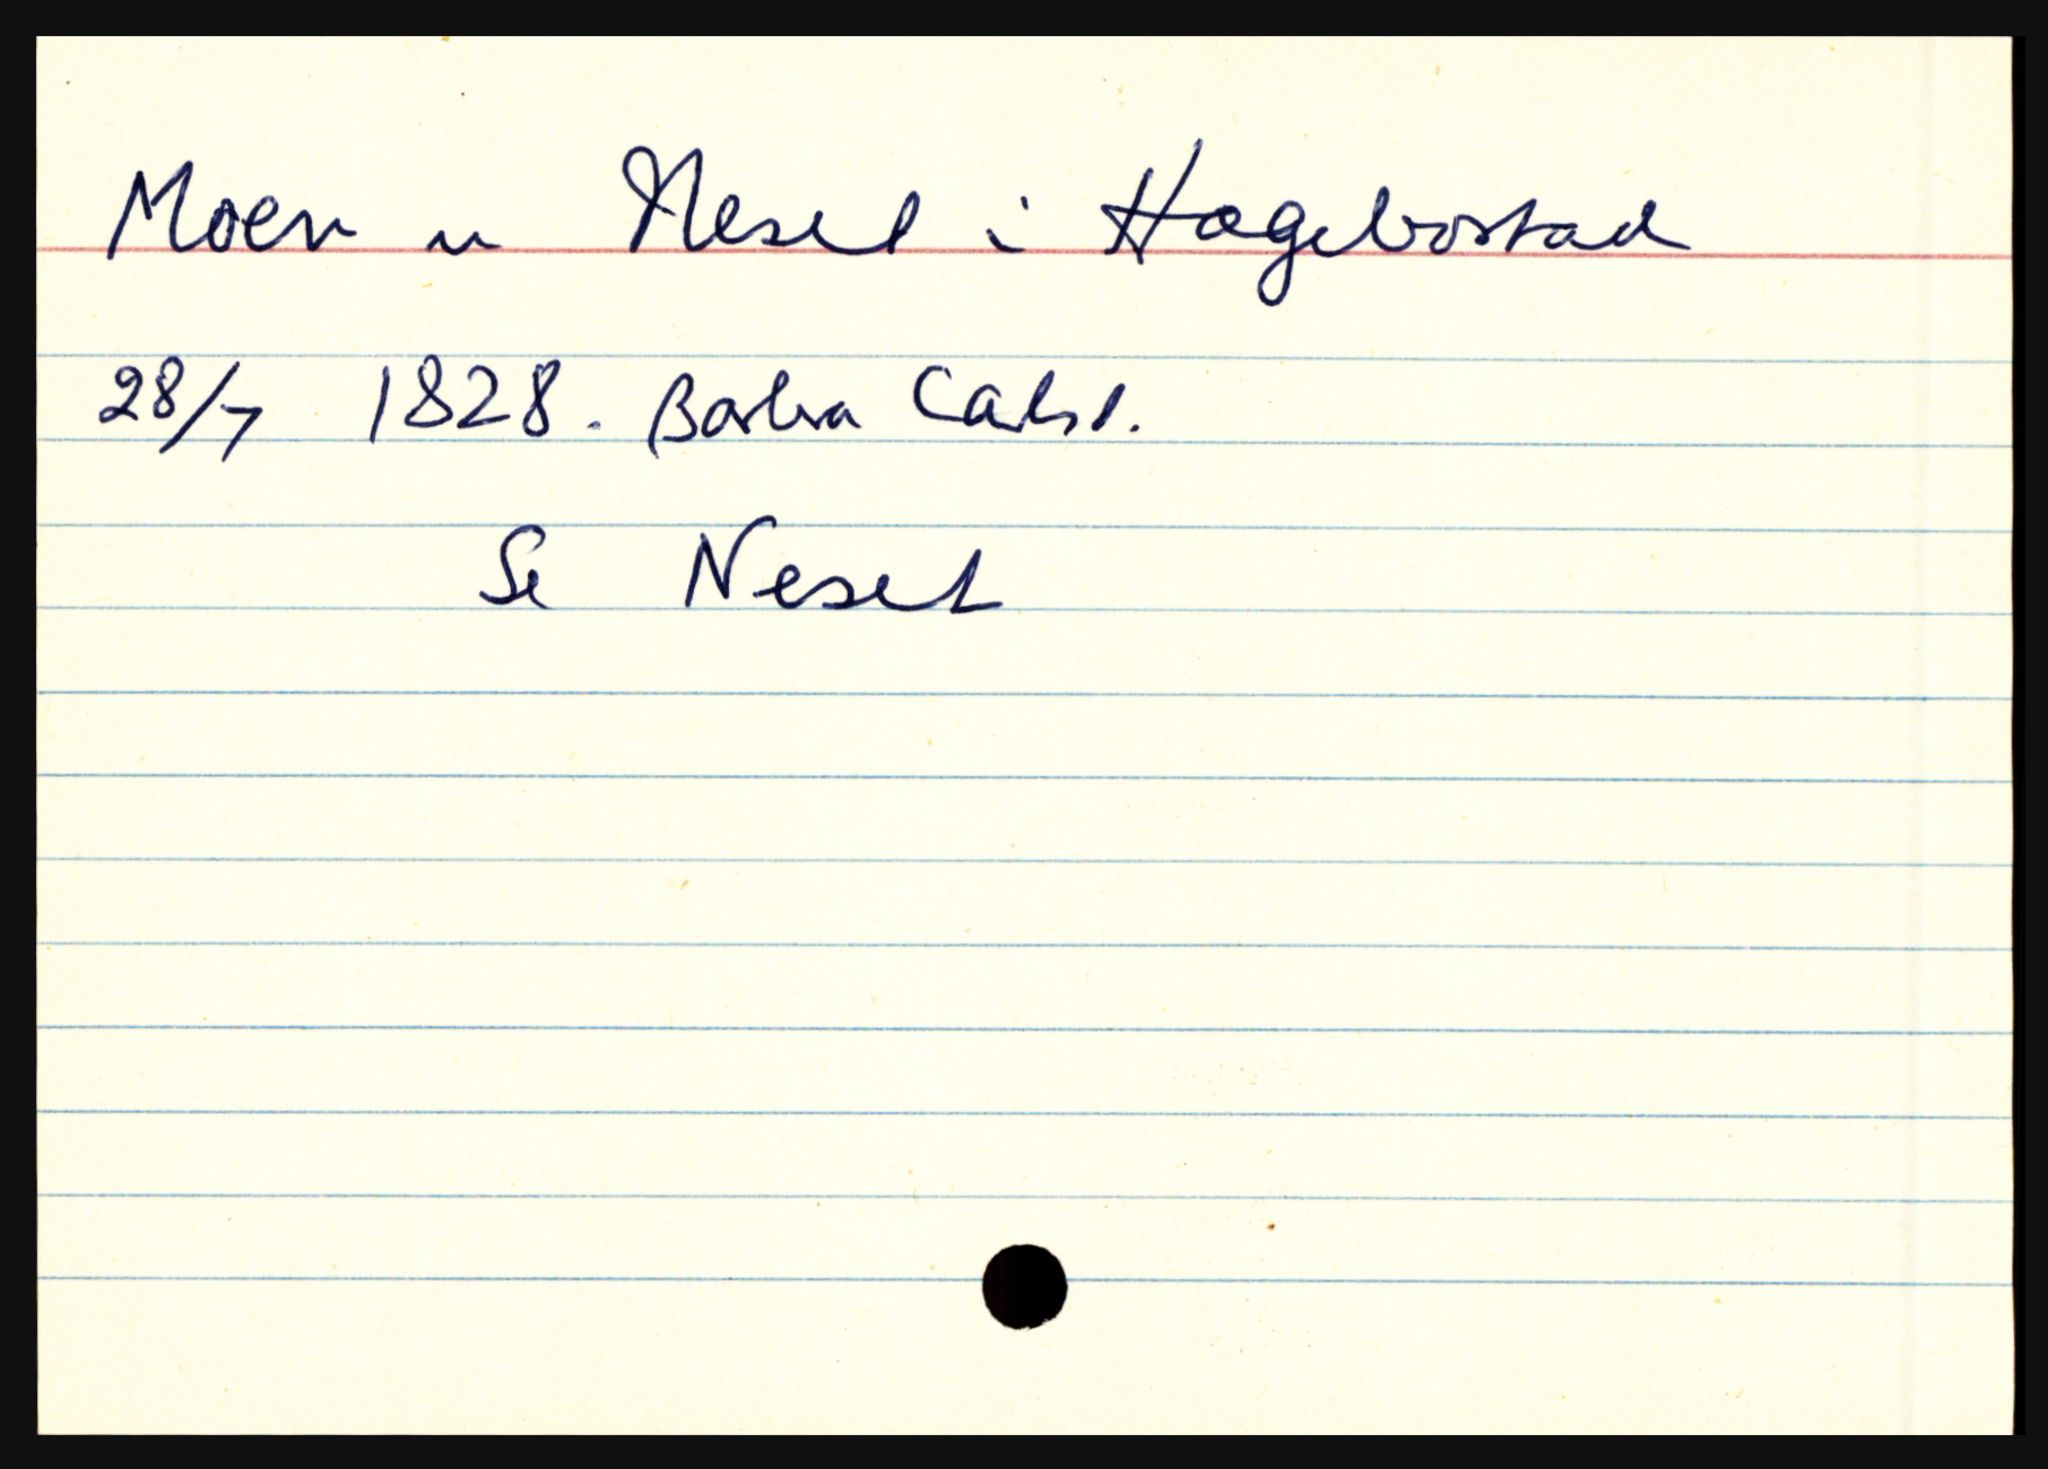 Moen u Neset i Hægebostad
28/7 1828. Barbra Carlsd.
Se Neset